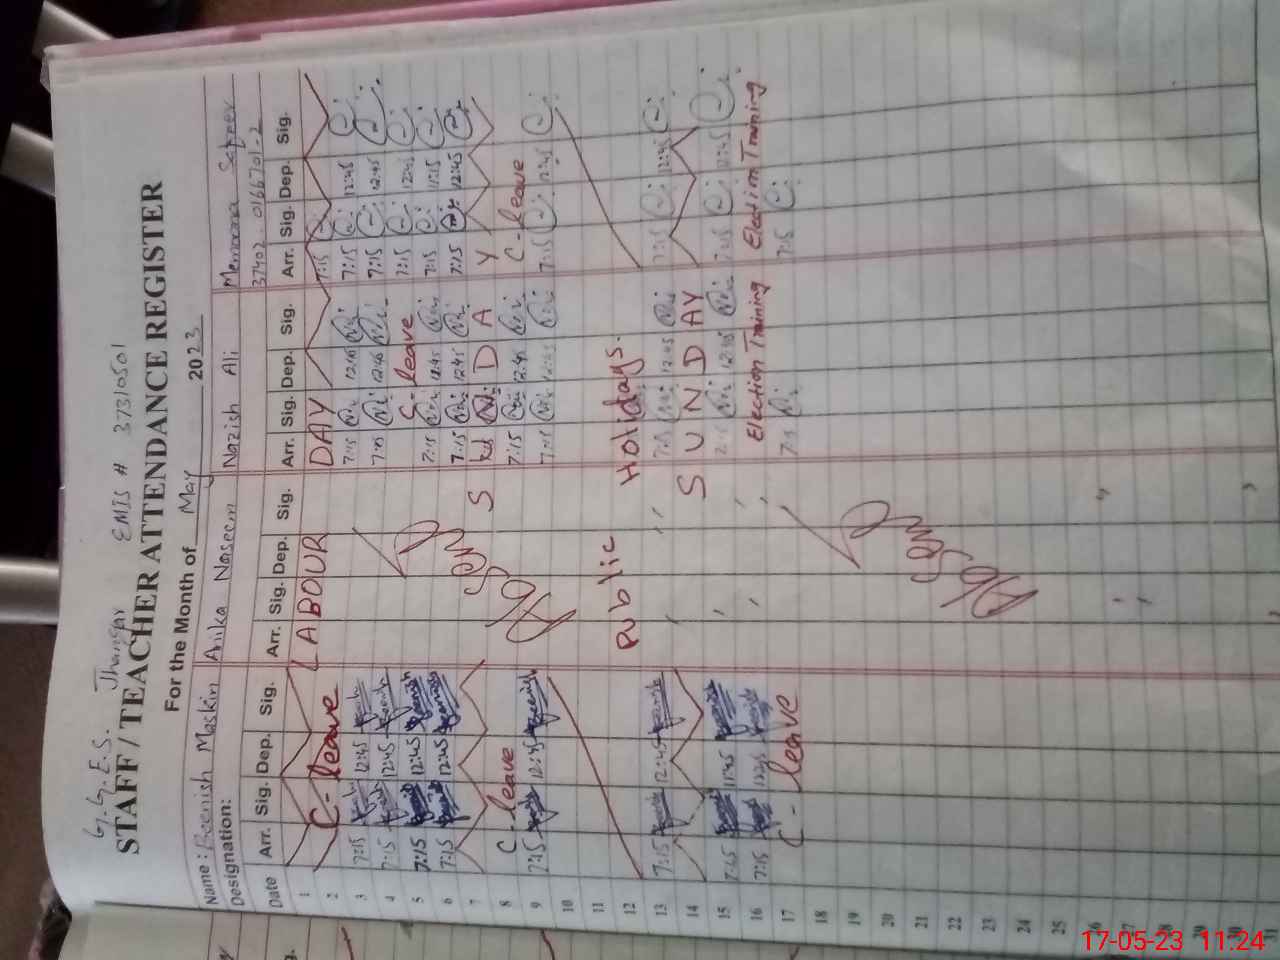 G.G.E.S. Jhangar EMIS # 37310501
STAFF / TEACHER ATTENDANCE REGISTER
For the Month of May 2023
Name: Beenish Maskin Anika Naseem Nazish Ali Memoona Safeer
Designation: 37402-0166701-2
Date Arr. Sig. Dep. Sig. Arr. Sig. Dep. Sig. Arr. Sig. Dep. Sig. Arr. Sig. Dep. Sig.
1 LABOUR DAY 7:15
2 C-leave 7:15 12:45 7:15 12:45
3 7:15 12:45 7:15 12:45 7:15 12:45
4 7:15 12:45 C-leave 7:15 12:45
5 7:15 12:45 7:15 12:45 7:15 11:15
6 7:15 12:45 7:15 12:45 7:15 12:45
7 S U N D A Y
8 C-leave 7:15 12:45 C-leave
9 7:15 12:45 7:15 12:45 7:15 12:45
Absent
10
11 Public Holidays.
12
13 7:15 12:45 7:15 12:45 7:15 12:45
14 S U N D A Y
15 7:15 11:45 7:15 12:45 7:15 12:45
16 7:15 12:45 Election Training Election Training
17 C-leave 7:15 7:15
18
19
20
Absent
21
22
23
24
25
26
27
28
29
30
31
17-05-23 11:24